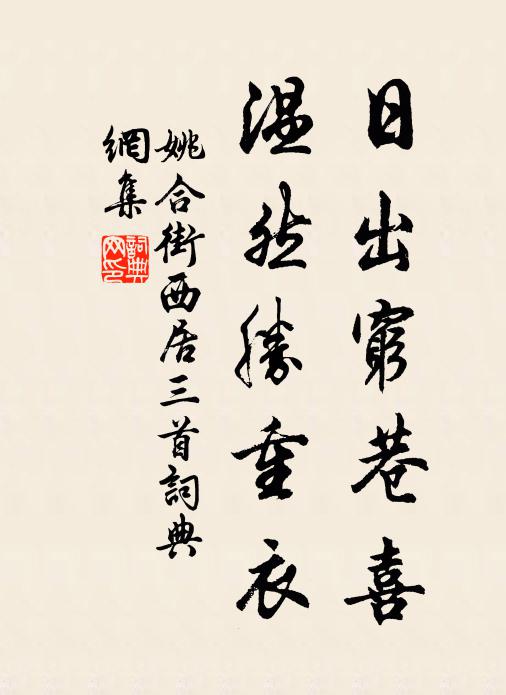 日出窮巷喜
溫然勝重衣
姚合街西居三首詞典
網集
詞典
网印